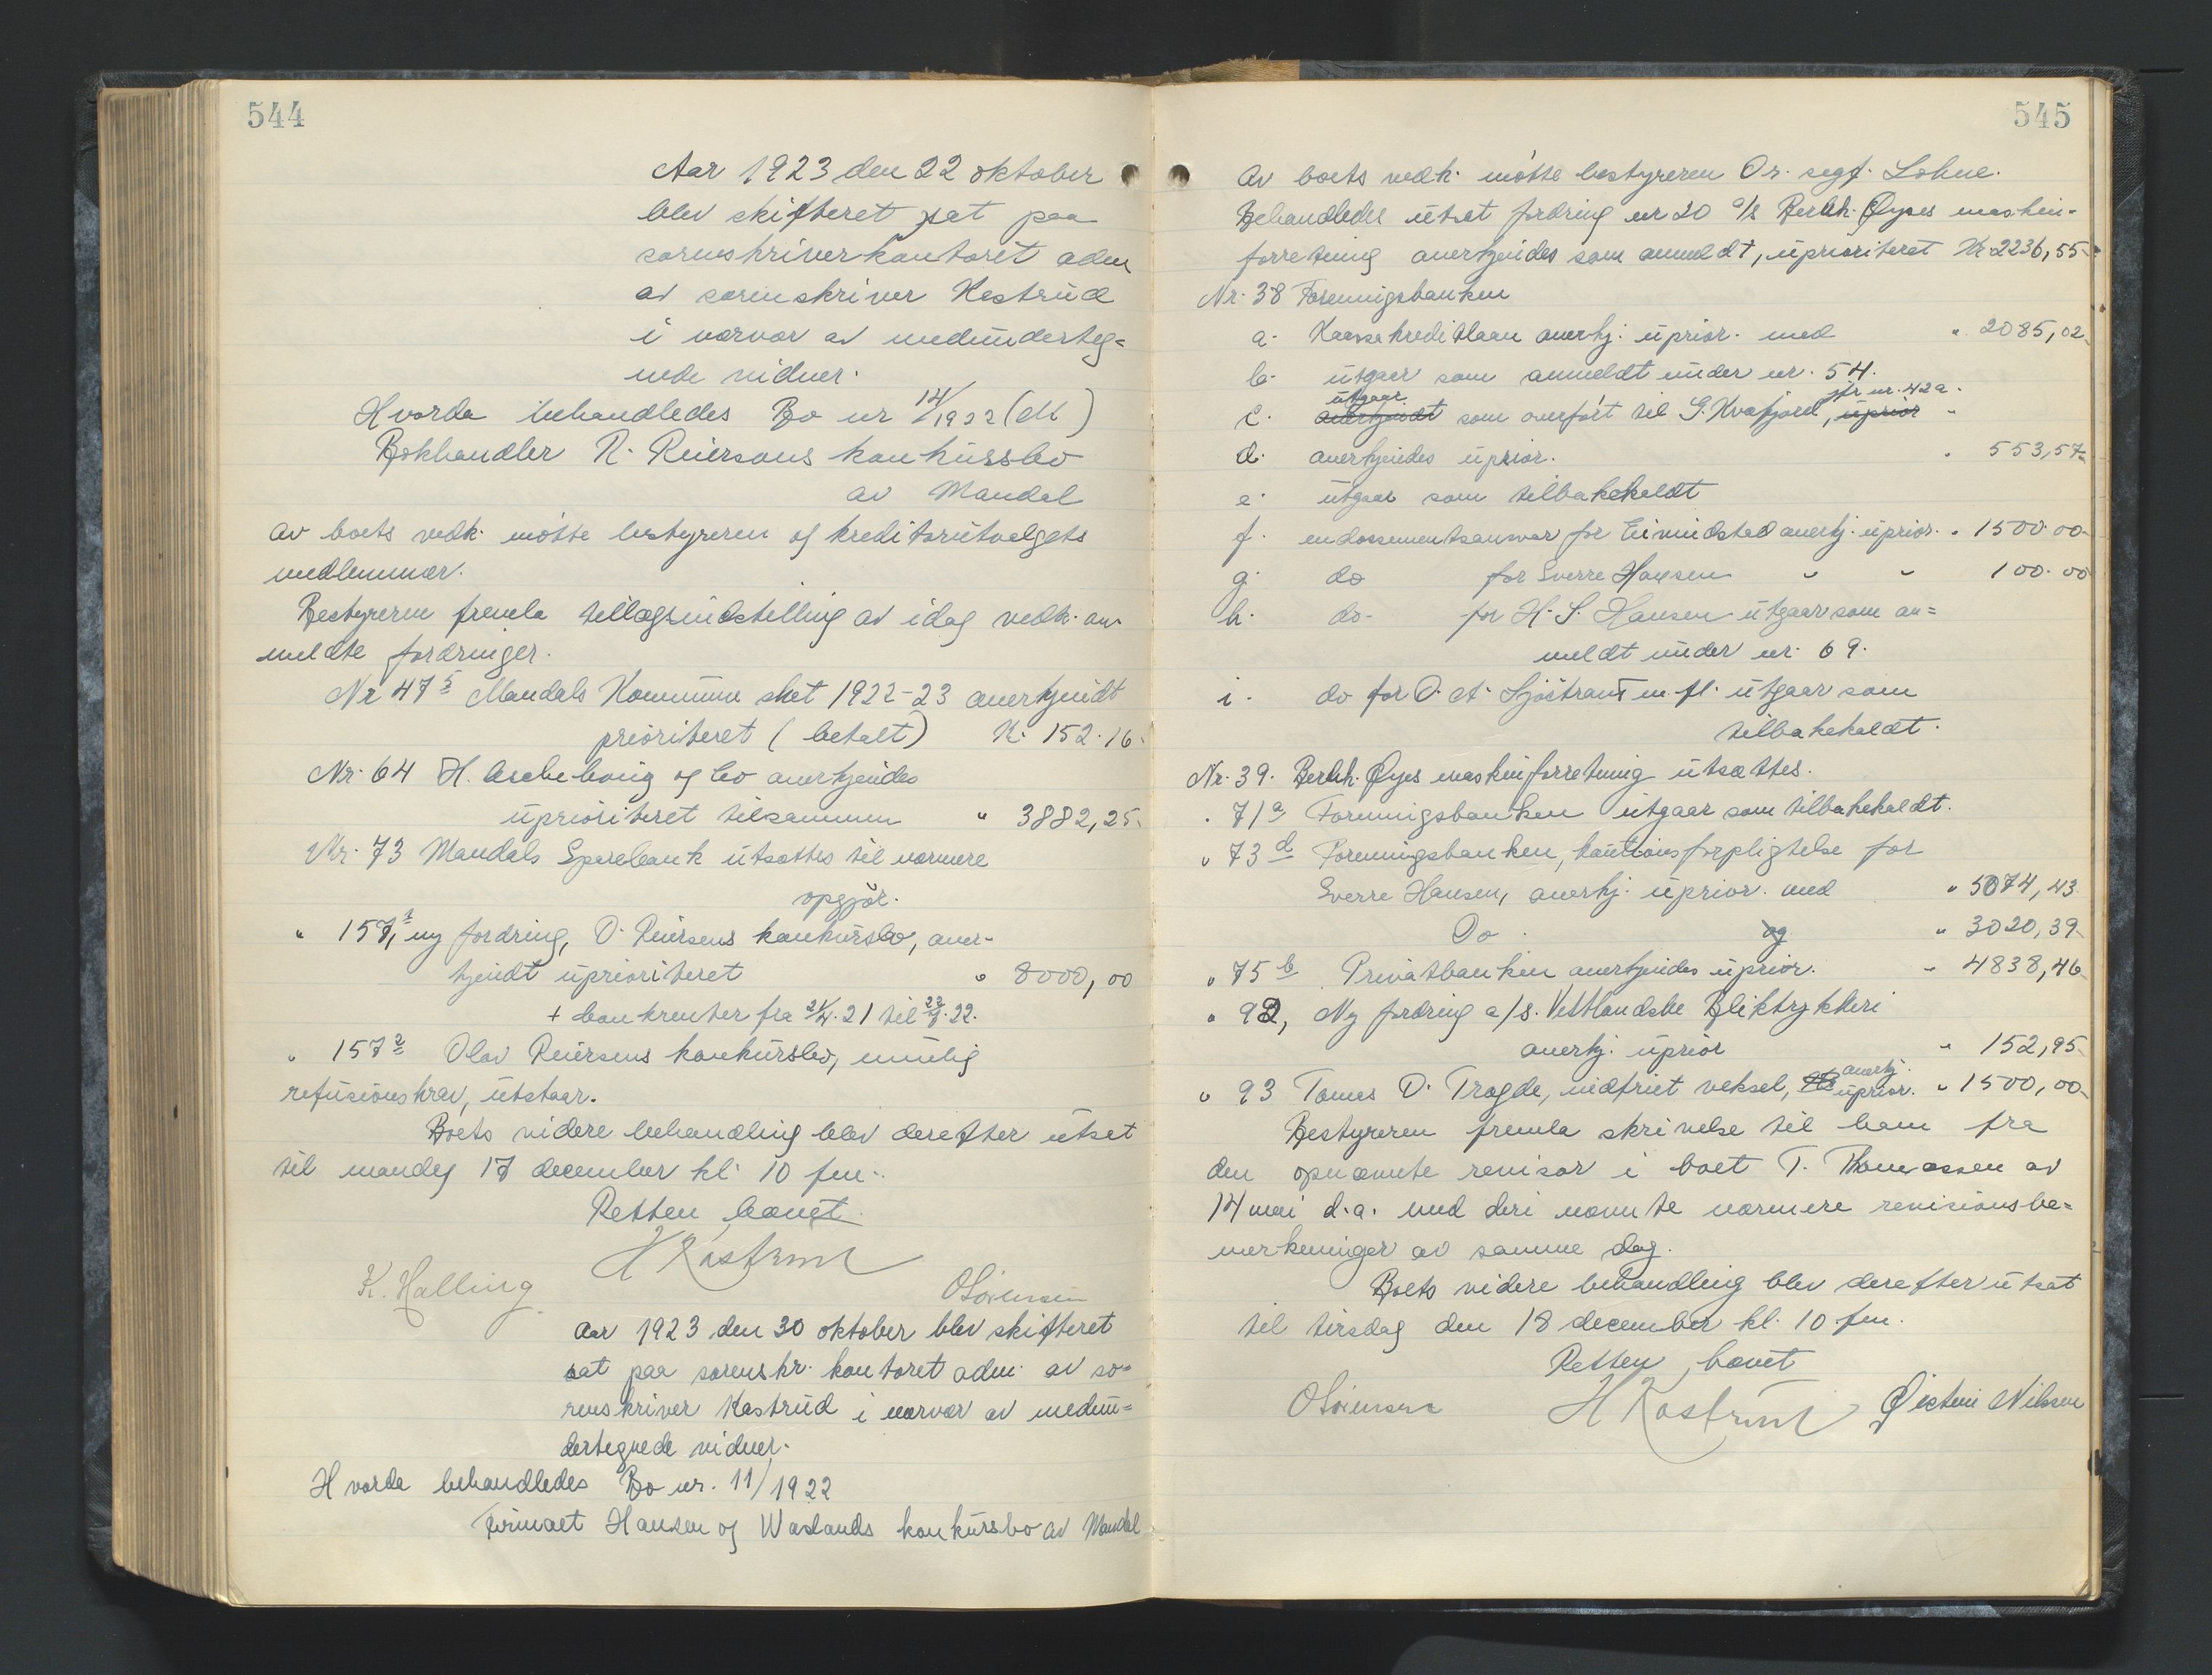 544
Aar 1923 den 22 oktober
blev skifteret sat paa
sorenskriverkontoret adm
av sorenskriver Kastrud
i nærvær av medunderteg=
nede vidner.
Hvorda behandledes Bo nr 14/1922 (M)
Bokhandler R. Reiersens konkursbo
av Mandal
Av boets vedk. møtte bestyreren og kreditorutvalgets
medlemmer.
Bestyreren fremla tillægsindstilling av idag vedk. an-
meldte fordringer.
Nr 47 5 Mandals Kommune skat 1922-23 anerkjendt
prioriteret (betalt) Kr. 152.16.
Nr. 64 H. Aschehoug og Co anerkjendes
uprioriteret tilsammen " 3882,25.
Nr. 73 Mandals Sparebank utsættes til nærmere
opgjør.
" 157,1 ny fordring, O. Reiersens konkursbo, aner-
kjendt uprioriteret " 8000,00
+ bankrenter fra 21/4.21 til 22/8.22.
" 157 2 Olav Reiersens konkursbo, mulig
refusionskrav, utstaar.
Boets videre behandling blev derefter utsat
til mandag 17 december kl. 10 fm..
Retten hævet.
H Kastrud
K. Halling OSörensen
Aar 1923 den 30 oktober blev skifteret
sat paa sorenskr. kontoret adm. av so=
renskriver Kastrud i nærvær av medun=
dertegnede vidner.
Hvorda behandledes Bo nr. 11/1922
Firmaet Hansen og Waslands konkursbo av Mandal
545
Av boets vedk. møtte bestyreren Or. sagf. Lohne.
Behandledes utsat fordring nr 20 a/s Berhh. Øyes maskin-
forretning anerkjendes som anmeldt, uprioriteret Kr. 2236,55
Nr. 38 Foreningsbanken
a. Kassakreditlaan anerkj. uprior. med " 2085,02
b. utgaar som anmeldt under nr. 54.
utgaar jfr nr. 42a.
c. anerkjendt som overført til G. Kvafjord, uprior "
d. anerkjendes uprior. " 553,57
e. utgaar som tilbakekaldt
f. endossementsansvar for Eimindstad anerkj. uprior. " 1500.00
g. do for Sverre Hansen " " 100.00
h. do. for H. S. Hansen utgaar som an=
meldt under nr. 69.
i. do for O. A. Sjöstrand m. fl. utgaar som
tilbakekaldt.
Nr. 39. Berhh. Øyes maskinforretning utsættes.
" 71a Foreningsbanken utgaar som tilbakekaldt.
" 73d Foreningsbanken, kautionsforpligtelse for
Sverre Hansen, anerkj. uprior. med " 5074,43
Do. og " 3020,39
" 75b Privatbanken anerkjendes uprior. " 4838,46
" 92, Ny fordring a/s. Vestlandske Bliktrykkeri
anerkj. uprior " 152,95
anerkj.
" 93 Tomas O. Tregde, indfriet veksel, uprior. " 1500,00
Bestyreren fremla skrivelse til ham fra
den opnævnte revisor i boet T. Thomassen av
14 mai d.a. med deri nævnte nærmere revisionsbe=
merkninger av samme dag.
Boets videre behandling blev derefter utsat
til tirsdag den 18 december kl. 10 fm.
Retten hævet
OSörensen H Kastrud Øistein Nilssen